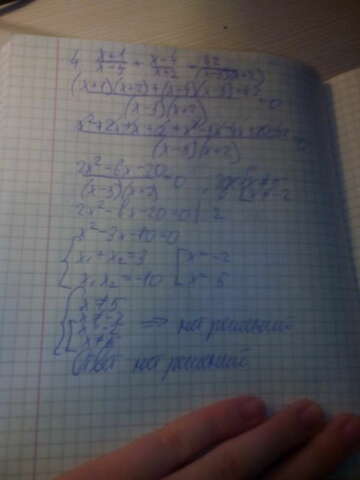 4. \frac{x+1}{x-5} + \frac{x-4}{x+2} = \frac{42}{(x-5)(x+2)}
\frac{(x+1)(x+2)+(x-4)(x-5)-42}{(x-5)(x+2)} = 0
\frac{x^2+2x+x+2+x^2-5x-4x+20-42}{(x-5)(x+2)} = 0
\frac{2x^2-6x-20}{(x-5)(x+2)} = 0, x≠5 x≠-2
2x^2-6x-20=0 | 2
x^2-3x-10=0
x_1+x_2=3 [ x=-2
x_1x_2=-10 [ x=5
x≠5
x≠-2
x=-2
x=5
=> нет решений
Ответ нет решений